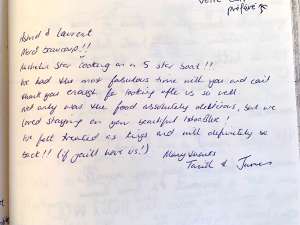 votre
préféré
& Laurent
Merci beaucoup!!
Michelin Star cooking on a 5 star boat!!
We had the most fabulous time with you and can't
thank you enough for looking after us so well.
Not only was the food absolutely delicious, but we
loved staying on your beautiful
We felt treated as kings and will definitely be
back!! (if you'll have us!)
Many thanks
&